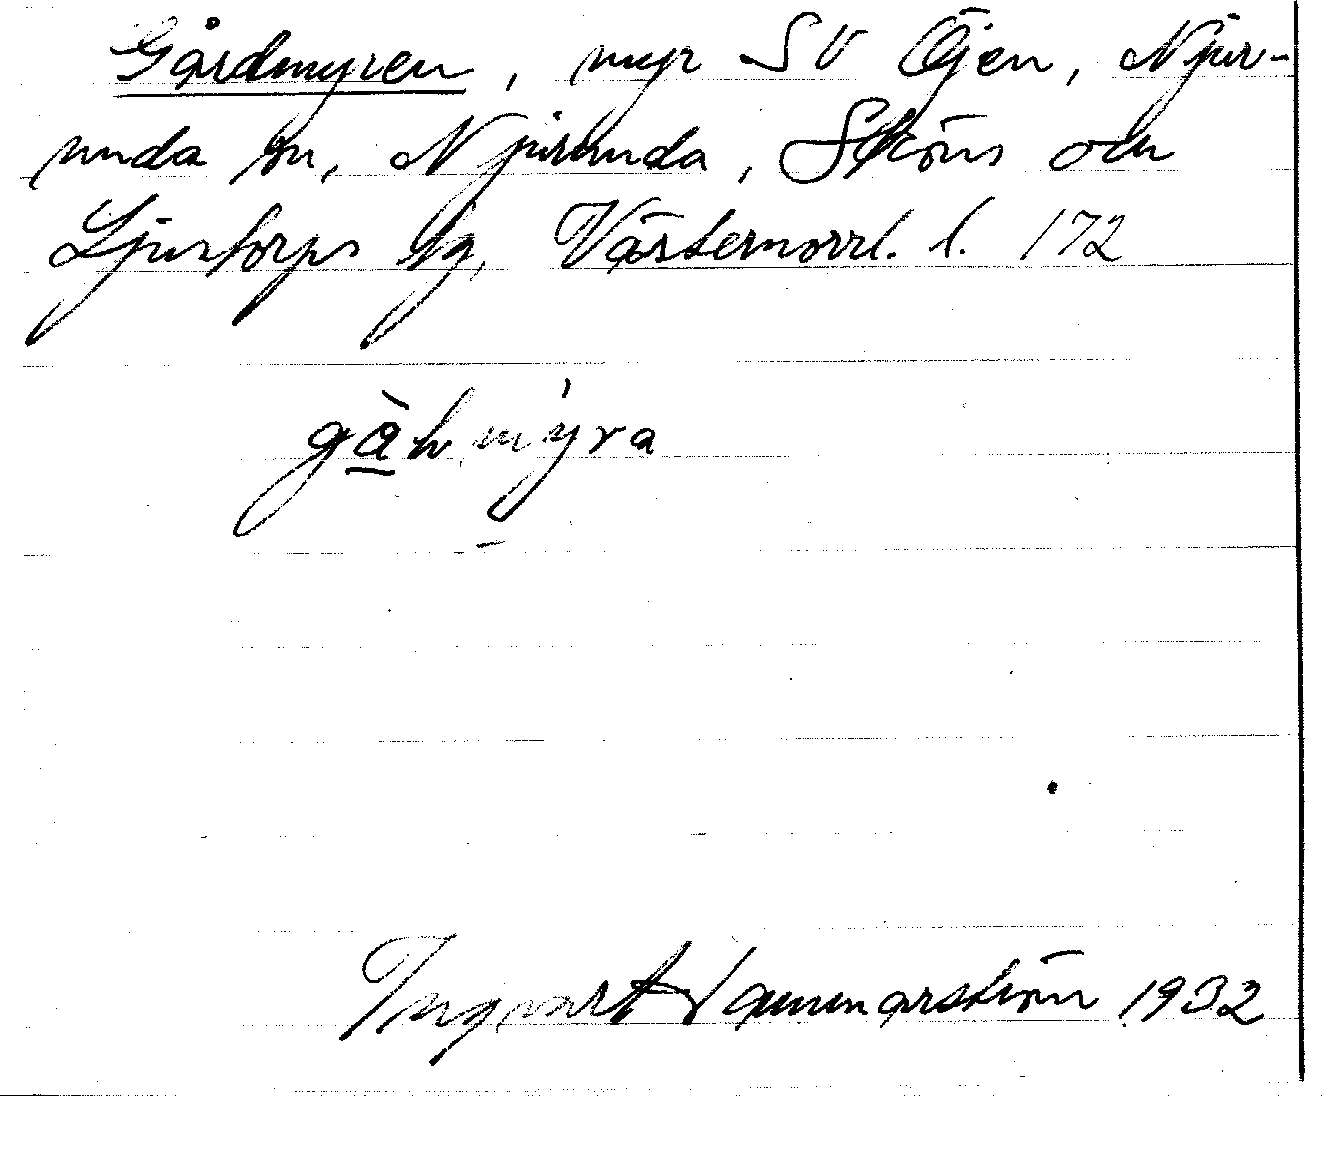 Gårdmyren, myr SV Öjen, Njur-
unda sn, Njurunda, Sköns och
Ljustorps tg, Västernorrl. l. 172
gàh mýra
Ingvart Hammarström 1932